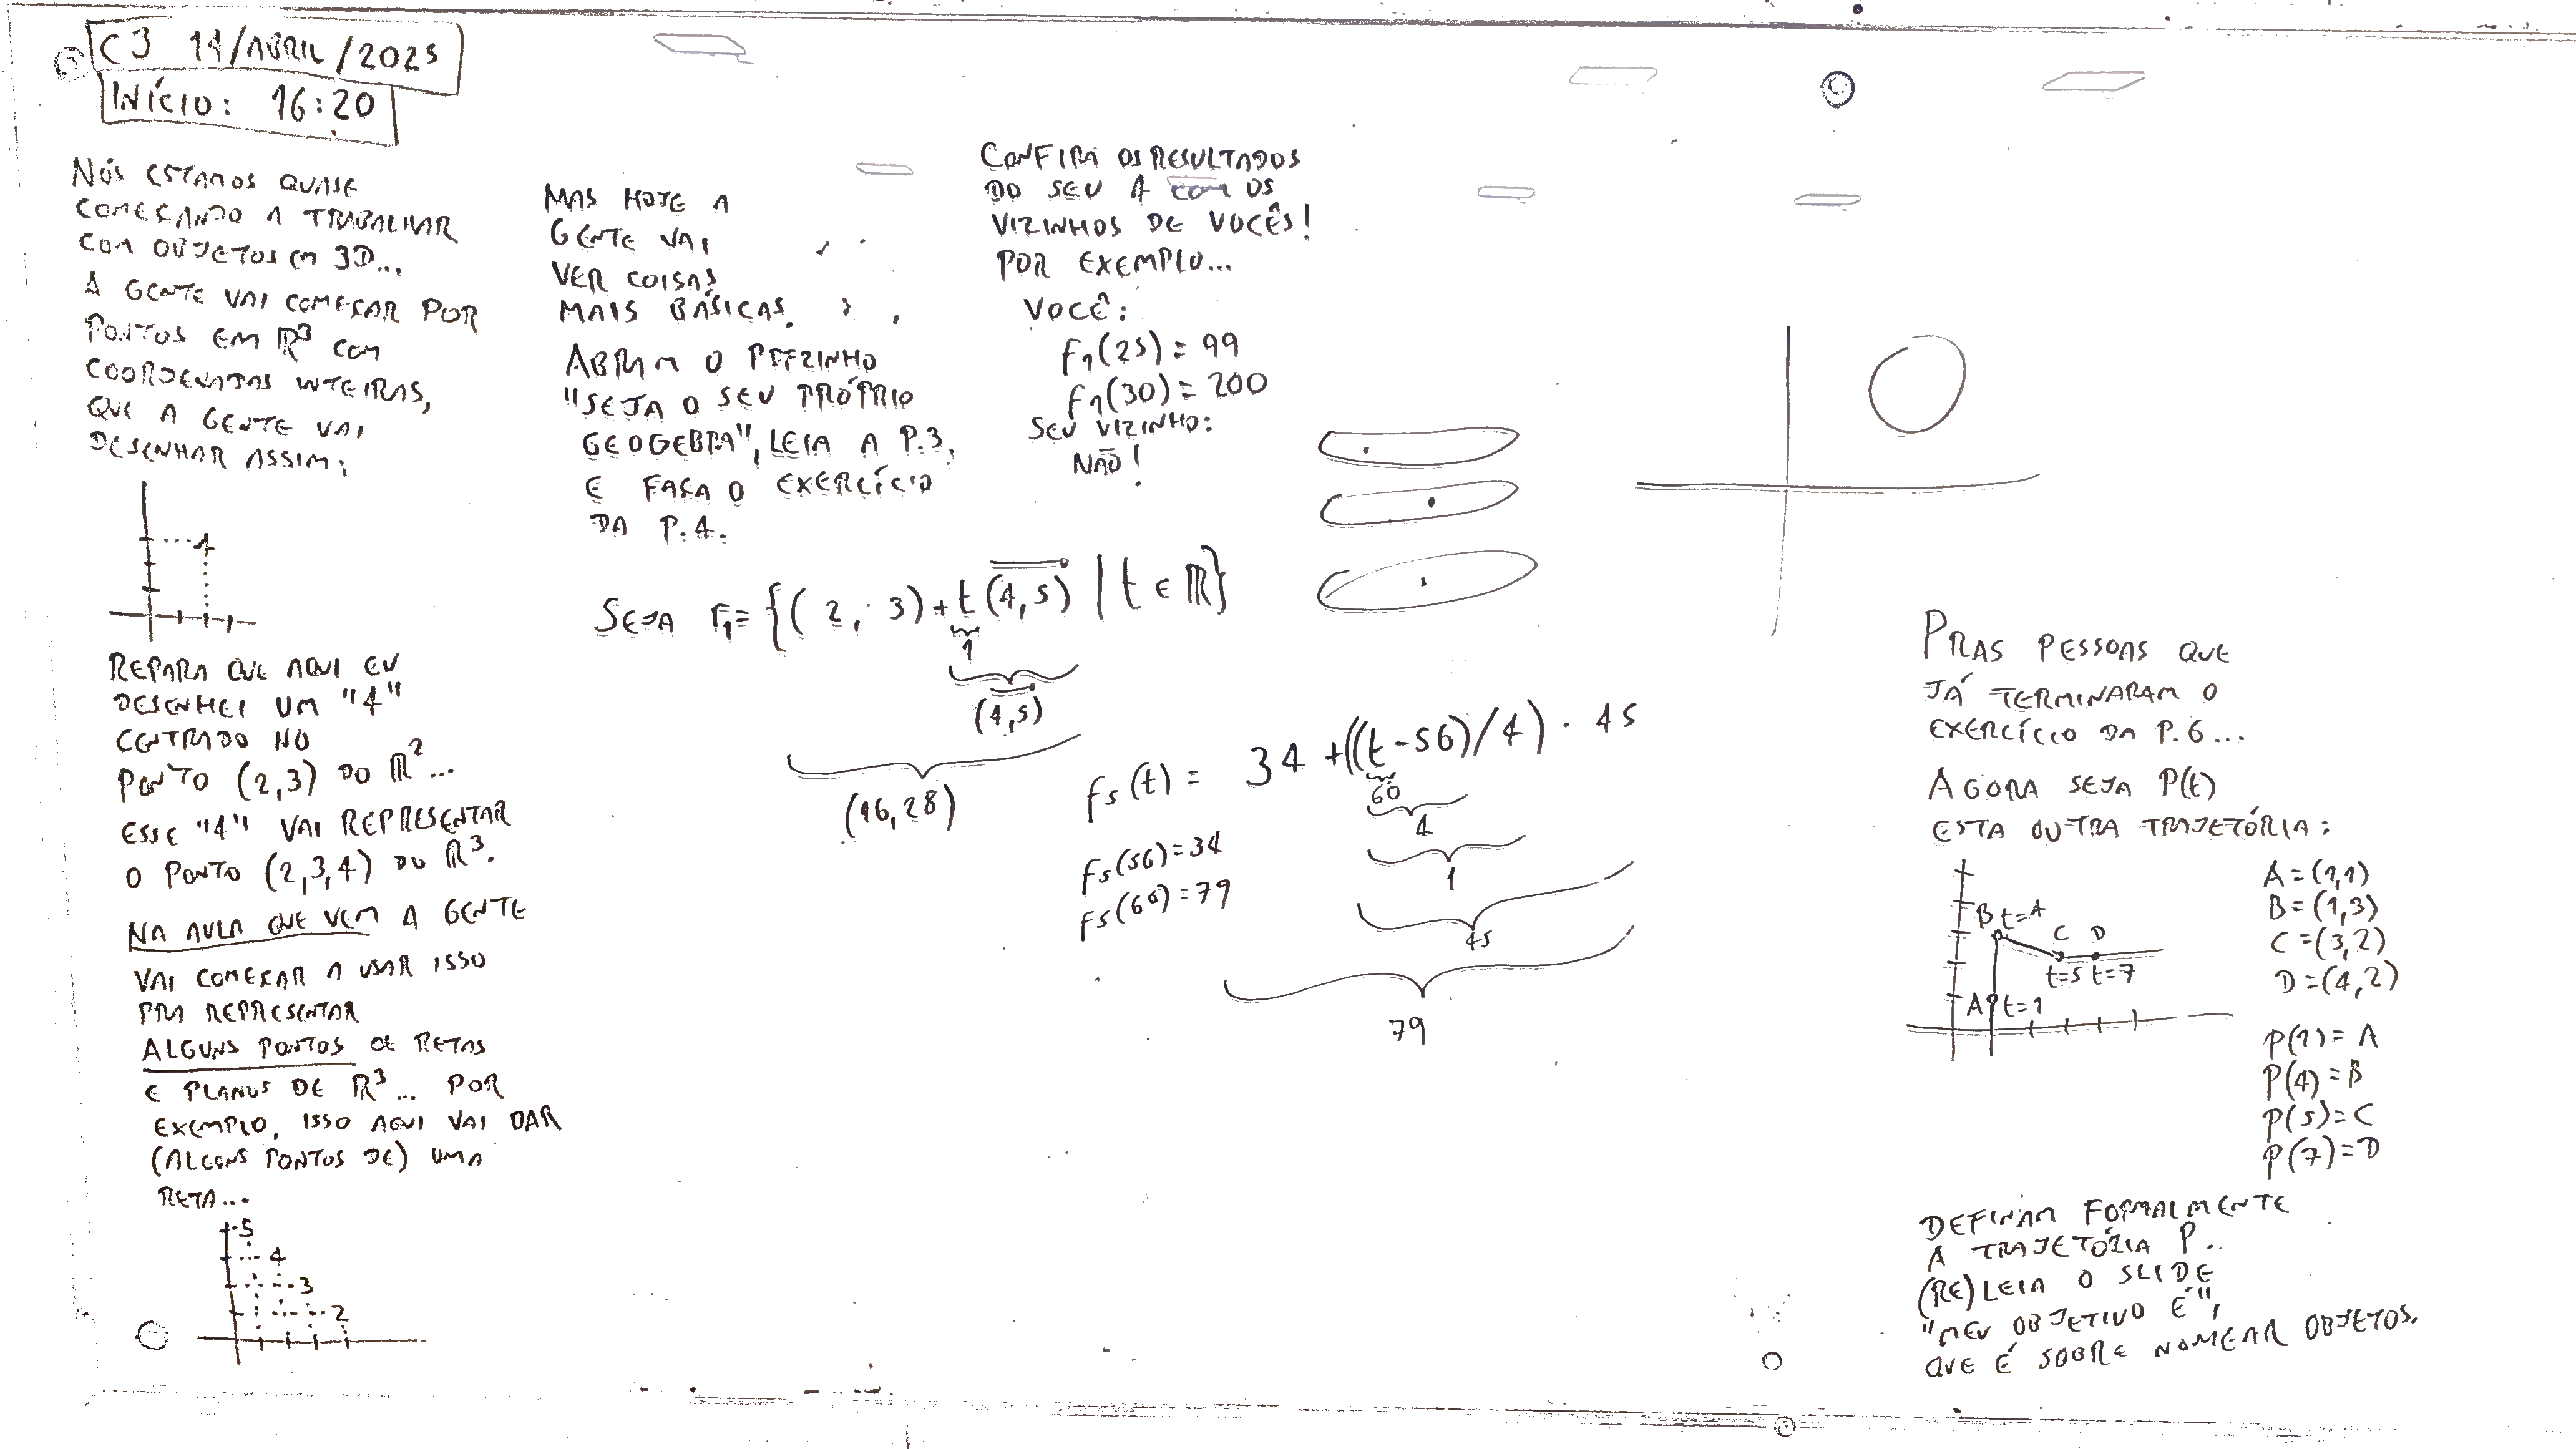 C3 14/ABRIL/2025
INÍCIO: 16:20
NÓS ESTAMOS QUASE
COMEÇANDO A TRABALHAR
COM OBJETOS EM 3D...
A GENTE VAI COMEÇAR POR
PONTOS EM ℝ³ COM
COORDENADAS INTEIRAS,
QUE A GENTE VAI
DESENHAR ASSIM:
4
REPARA QUE AQUI EU
DESENHEI UM "4"
CENTRADO NO
PONTO (2,3) DO ℝ²...
ESSE "4" VAI REPRESENTAR
O PONTO (2,3,4) DO ℝ³.
NA AULA QUE VEM A GENTE
VAI COMEÇAR A USAR ISSO
PRA REPRESENTAR
ALGUNS PONTOS DE RETAS
E PLANOS DE ℝ³... POR
EXEMPLO, ISSO AQUI VAI DAR
(ALGUNS PONTOS DE) UMA
RETA...
5
4
3
2
MAS HOJE A
GENTE VAI
VER COISAS
MAIS BÁSICAS.
ABRAM O PDFZINHO
"SEJA O SEU PRÓPRIO
GEOGEBRA", LEIA A P.3,
E FAÇA O EXERCÍCIO
DA P.4.
CONFIRA OS RESULTADOS
DO SEU A COM OS
VIZINHOS DE VOCÊS!
POR EXEMPLO...
VOCÊ:
f₁(25) = 99
f₁(30) = 200
SEU VIZINHO:
NÃO!
SEJA r₁ = {(2, 3) + t (4,5) | t ∈ ℝ}
1
(4,5)
(16,28)
f₅(t) = 34 + ((t-56)/4) · 45
60
4
1
45
79
f₅(56) = 34
f₅(60) = 79
PRAS PESSOAS QUE
JÁ TERMINARAM O
EXERCÍCIO DA P.6...
AGORA SEJA P(t)
ESTA OUTRA TRAJETÓRIA:
B t=4
C D
t=5 t=7
A t=1
A = (1,1)
B = (1,3)
C = (3,2)
D = (4,2)
P(1) = A
P(4) = B
P(5) = C
P(7) = D
DEFINAM FORMALMENTE
A TRAJETÓRIA P.
(RE)LEIA O SLIDE
"MEU OBJETIVO É",
QUE É SOBRE NOMEAR OBJETOS.